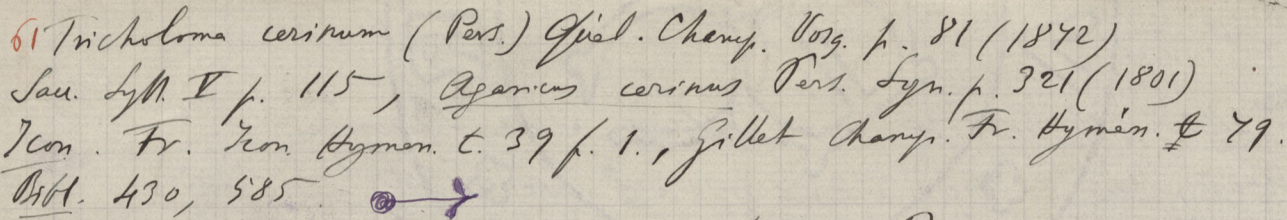 61 Tricholoma cerinum (Pers.) Quél. Champ. Vosg. p. 81 (1872)
Sacc. Syll. V p. 115, Agaricus cerinus Pers. Syn. p. 321 (1801)
Icon. Fr. Icon. Hymen. t. 39 f. 1., Gillet Champ. Fr. Hymén. t 79.
Bibl. 430, 585